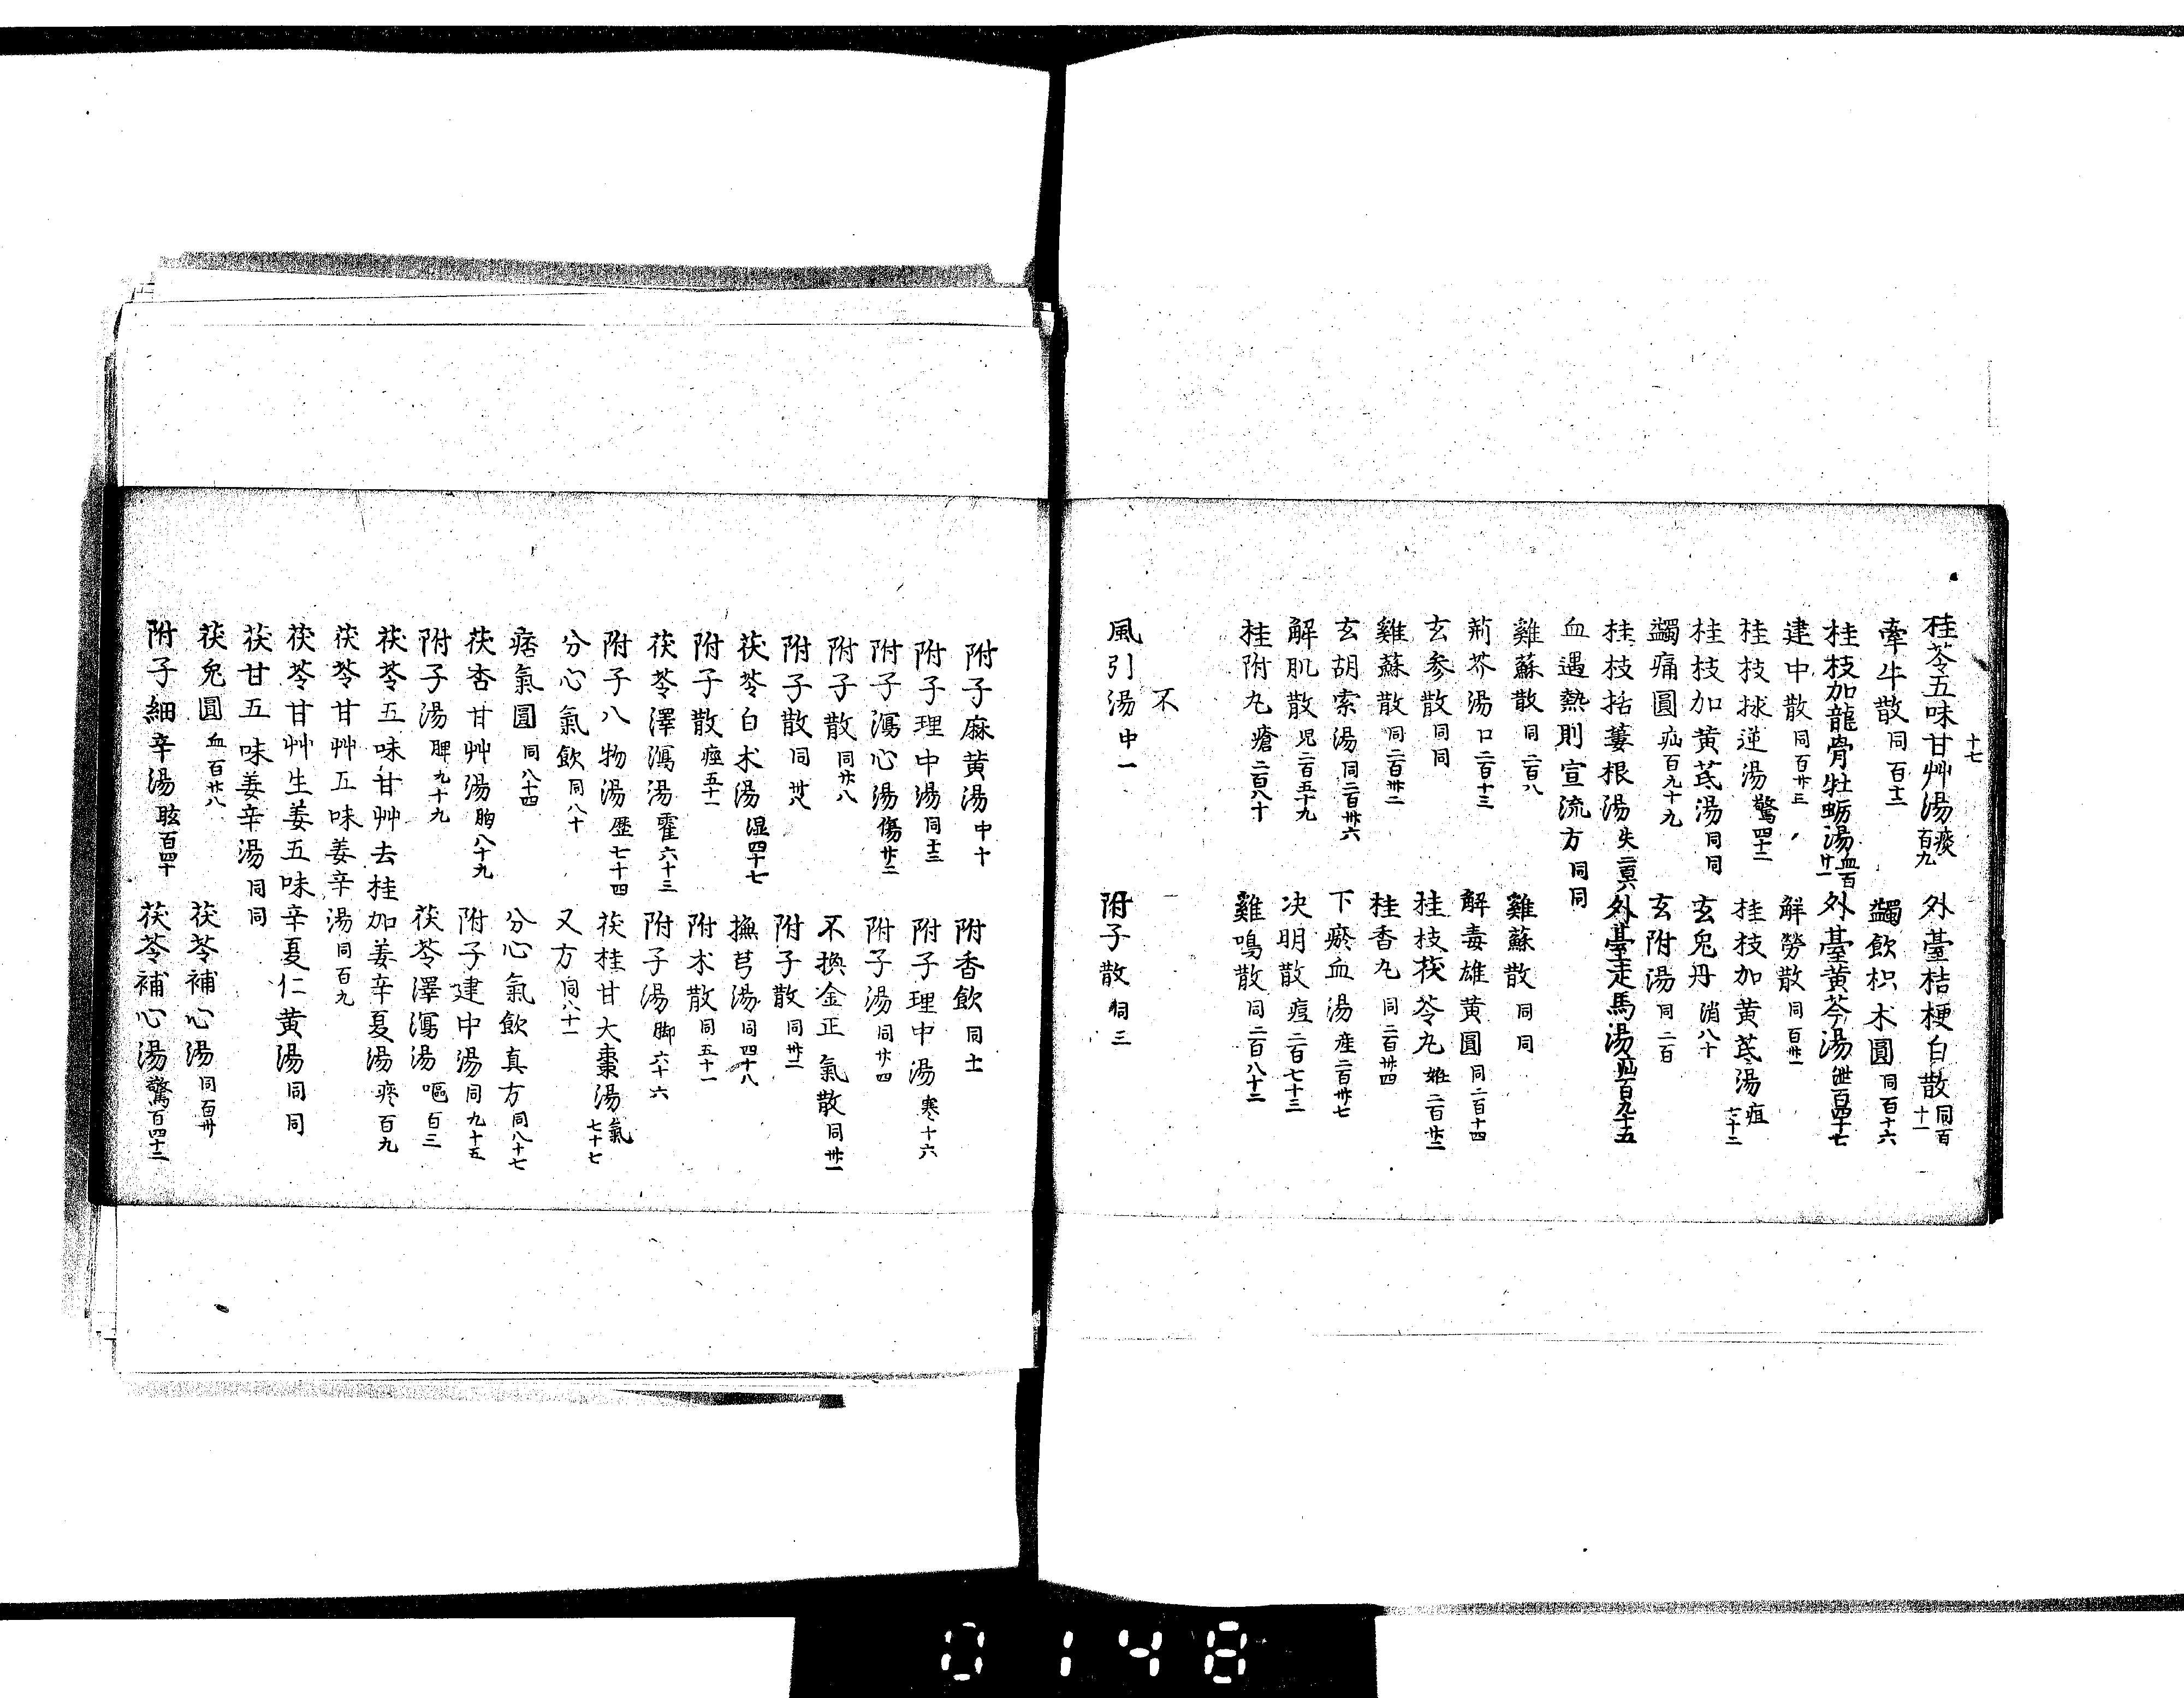 十七
桂苓五味甘艸湯 痰百九 外臺桔梗白散 同百十一
牽牛散 同百十二 蠲飲枳朮圓 同百十六
桂枝加龍骨牡蛎湯 血百廿一 外臺黄芩湯 泄百四十七
建中散 同百廿三 解勞散 同百卅一
桂枝救逆湯 驚四十二 桂枝加黄茋湯 疸七十二
桂枝加黄茋湯 同同 玄兔丹 消八十
蠲痛圓 疝百九十九 玄附湯 同二百
桂枝括蔞根湯 失 外臺走馬湯 疝百九十五
血遇熱則宣流方 同同
雞蘇散 同二百八 雞蘇散 同同
荊芥湯 口二百十三 解毒雄黄圓 同二百十四
玄参散 同同 桂枝茯苓丸 姙二百廿二
雞蘇散 同二百卅二 桂香丸 同二百卅四
玄胡索湯 同二百卅六 下瘀血湯 産二百卅七
解肌散 児二百五十九 决明散 痘二百七十三
桂附丸 瘡二百八十 雞鳴散 同二百八十二
不
風引湯 中一 附子散 同三
附子麻黄湯 中十 附香飲 同十一
附子理中湯 同十三 附子理中湯 寒十六
附子瀉心湯 傷廿二 附子湯 同廿四
附子散 同廿八 不換金正氣散 同卅一
附子散 同卅八 附子散 同卅二
茯苓白朮湯 湿四十七 撫芎湯 同四十八
附子散 痙五十一 附朮散 同五十一
茯苓澤瀉湯 霍六十三 附子湯 脚六十六
附子八物湯 歴七十四 茯桂甘大棗湯 氣七十七
分心氣飲 同八十 又方 同八十一
痞氣圓 同八十四 分心氣飲真方 同八十七
茯杏甘艸湯 胸八十九 附子建中湯 同九十五
附子湯 脾九十九 茯苓澤瀉湯 嘔百三
茯苓五味甘艸去桂加姜辛夏湯 痰百九
茯苓甘艸五味姜辛湯 同百九
茯苓甘艸生姜五味辛夏仁黄湯 同同
茯甘五味姜辛湯 同同
茯兔圓 血百廿八 茯苓補心湯 同百卅
附子細辛湯 眩百四十 茯苓補心湯 驚百四十二
0148